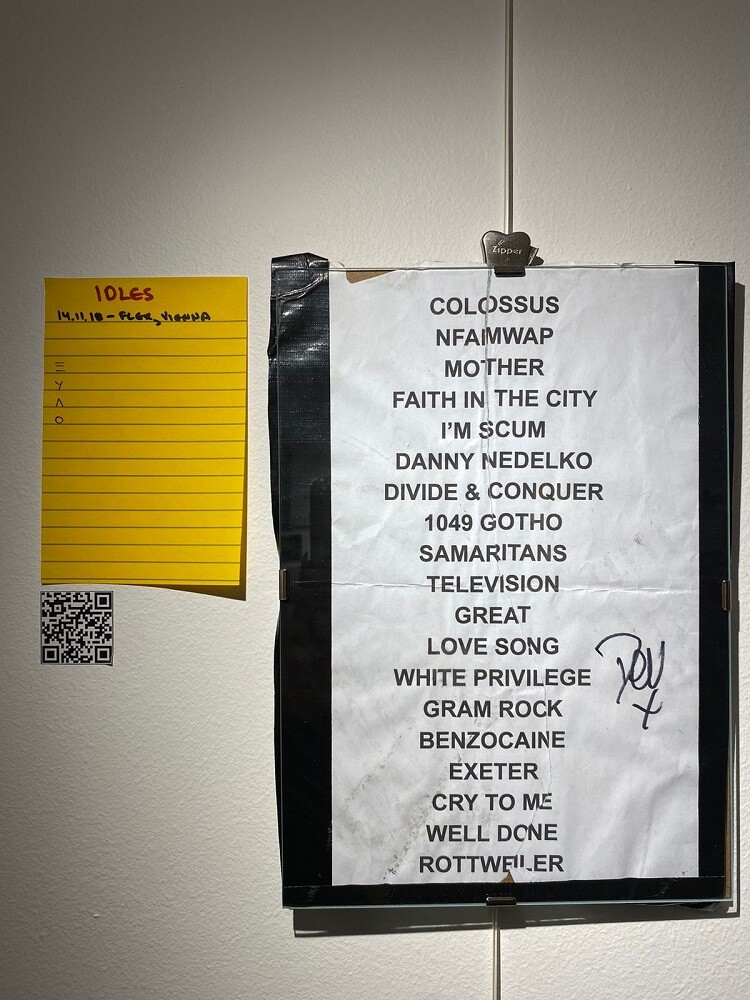 IDLES
14.11.18 - FLEX, VIENNA
Ξ
Υ
Λ
Ο
Zipper
COLOSSUS
NFAMWAP
MOTHER
FAITH IN THE CITY
I'M SCUM
DANNY NEDELKO
DIVIDE & CONQUER
1049 GOTHO
SAMARITANS
TELEVISION
GREAT
LOVE SONG
WHITE PRIVILEGE
GRAM ROCK
BENZOCAINE
EXETER
CRY TO ME
WELL DONE
ROTTWEILER
Dev
x